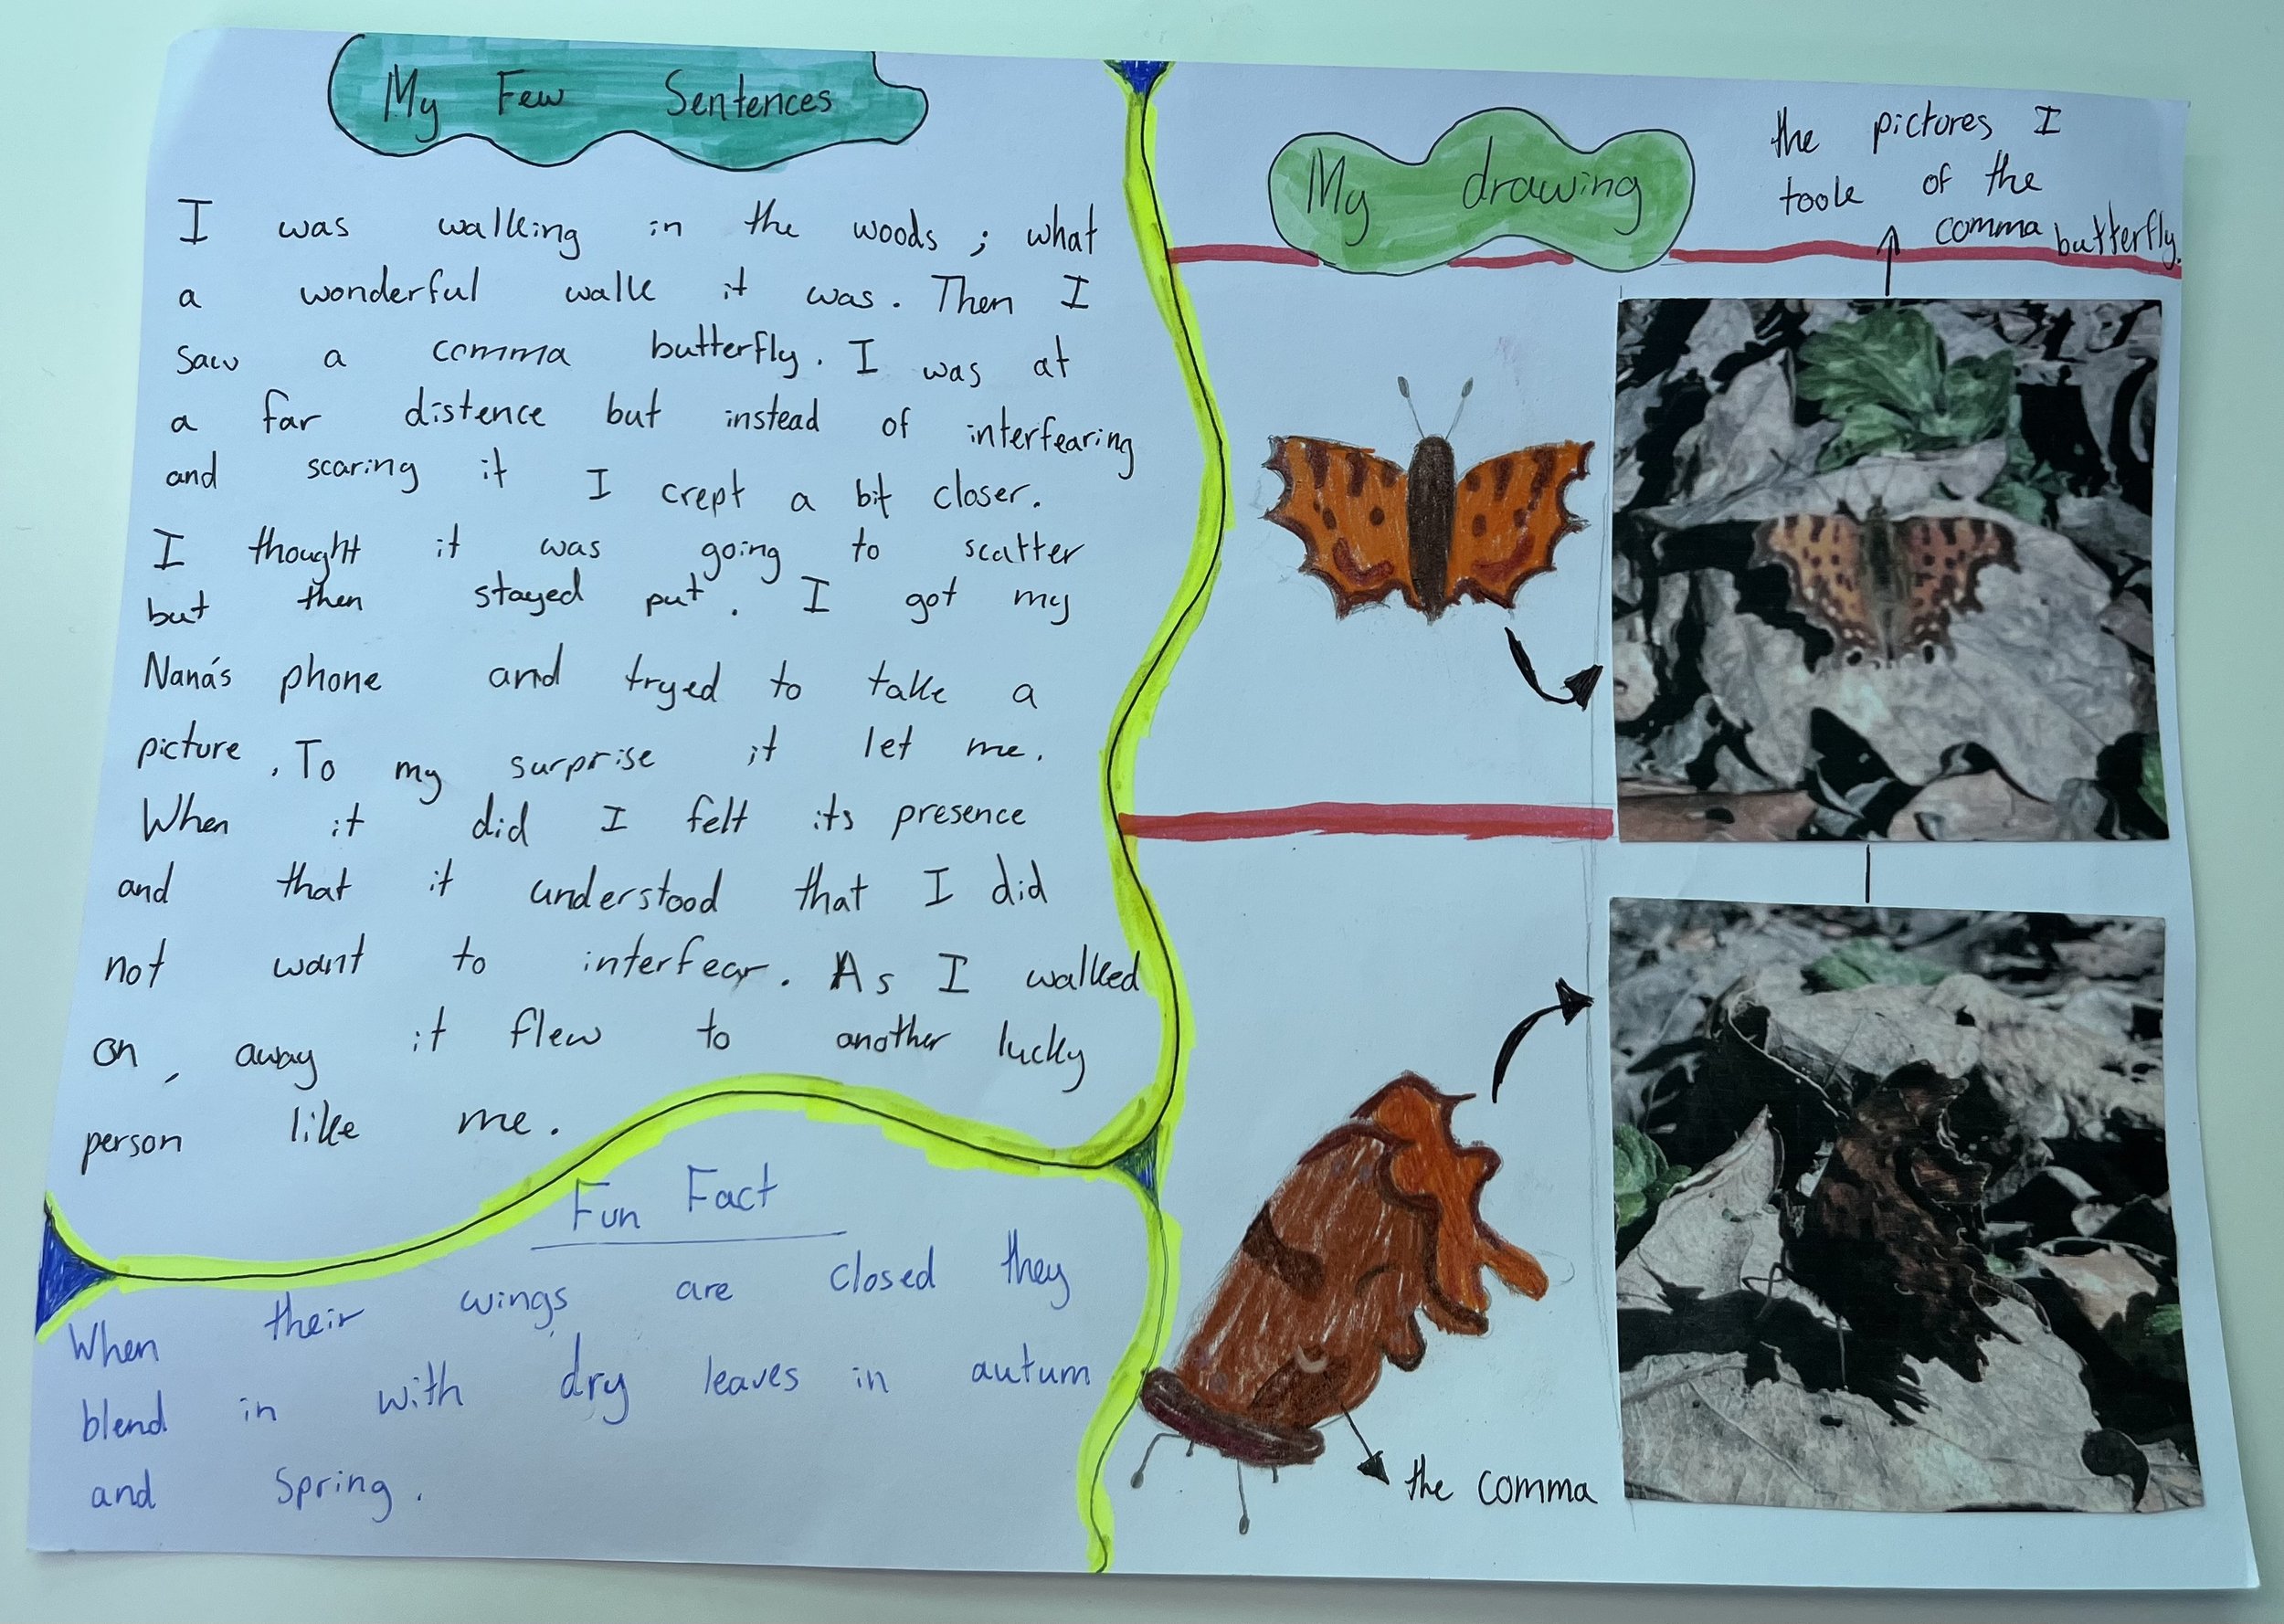 My Few Sentences
I was walking in the woods ; what
a wonderful walk it was. Then I
saw a comma butterfly. I was at
a far distence but instead of interfearing
and scaring it I crept a bit closer.
I thought it was going to scatter
but then stayed put. I got my
Nana's phone and tryed to take a
picture. To my surprise it let me.
When it did I felt its presence
and that it understood that I did
not want to interfear. As I walked
on, away it flew to another lucky
person like me.
Fun Fact
When their wings are closed they
blend in with dry leaves in autum
and Spring.
My drawing
the pictures I
took of the
comma butterfly.
the comma